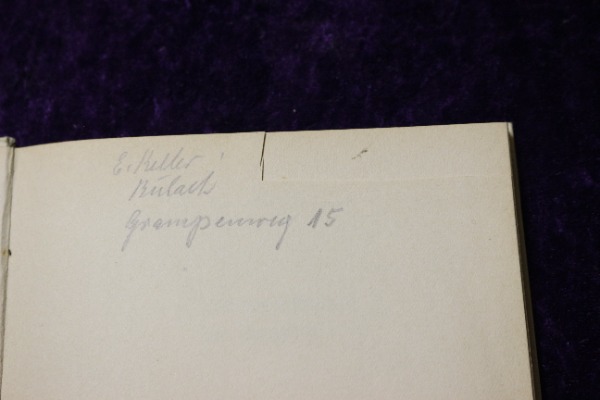 E. Keller
Bülach
Grampenweg 15